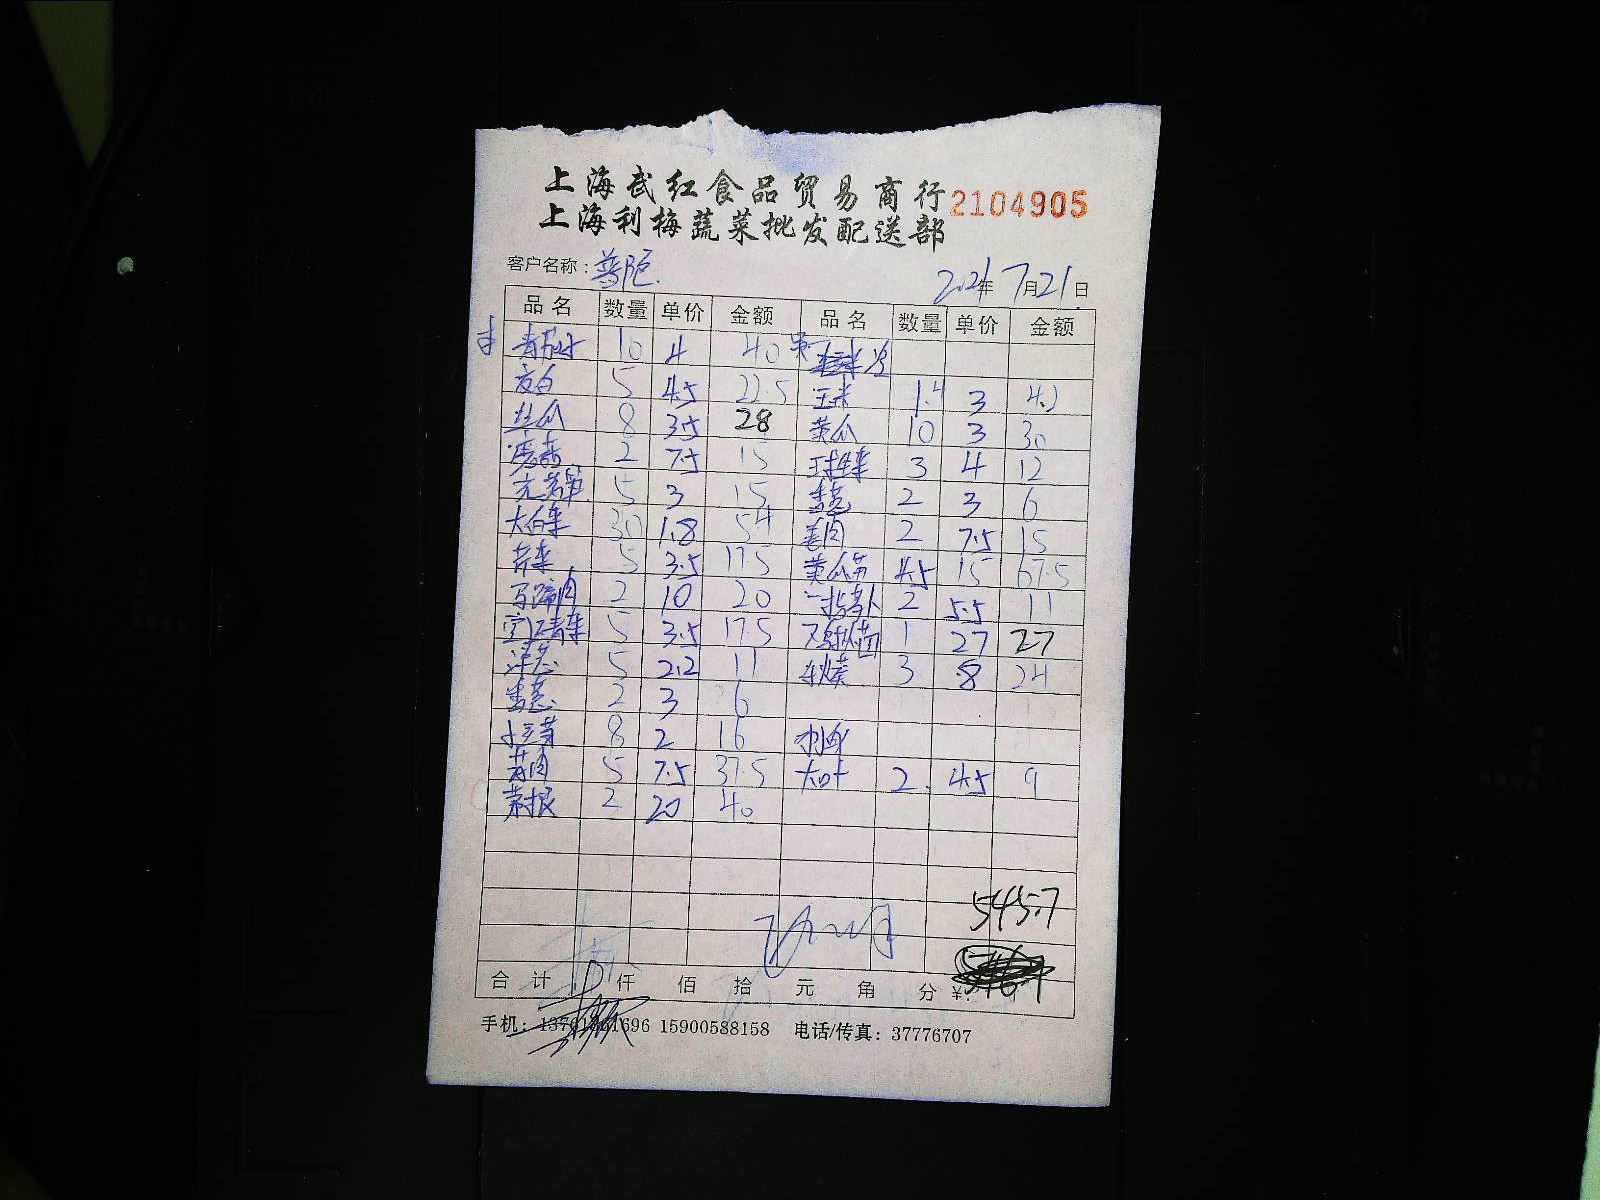 上海武红食品贸易商行
2104905
上海利梅蔬菜批发配送部
客户名称：普陀
2021年7月21日
品名 数量 单价 金额 品名 数量 单价 金额
10 4 40
茭白 5 4.5 22.5 玉米 1.4 3 4.2
丝瓜 8 3.5 28 黄瓜 10 3 30
2 7.5 15 球生菜 3 4 12
5 3 15 香葱 2 3 6
大白菜 30 1.8 54 姜肉 2 7.5 15
芹菜 5 3.5 17.5 4.5 15 67.5
马蹄肉 2 10 20 2 5.5 11
空心菜 5 3.5 17.5 1 27 27
洋葱 5 2.2 11 3 8 24
香葱 2 3 6
小土豆 8 2 16
5 7.5 37.5 大叶 2 4.5 9
2 20 40
545.7
合计 仟 佰 拾 元 角 分 ¥:
手机: 1696 15900588158 电话/传真: 37776707